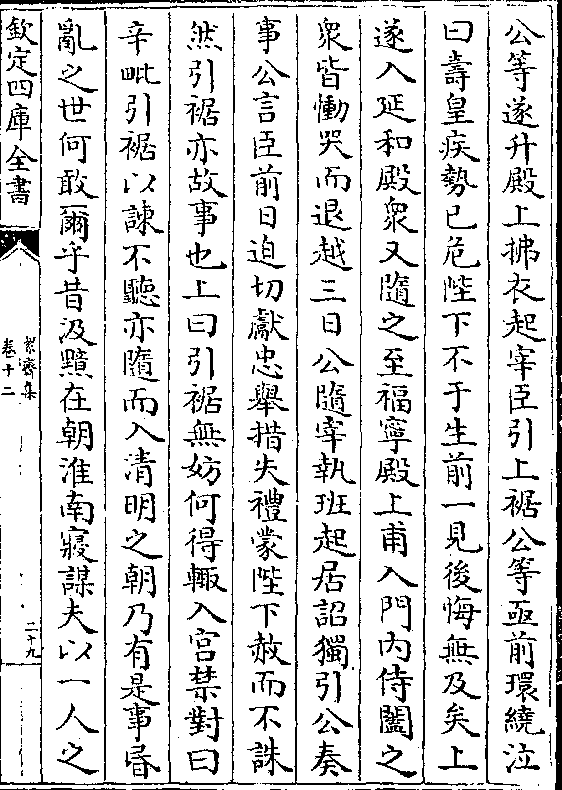 公等遂升殿上拂衣起宰臣引上裾公等亟前環繞泣
曰壽皇疾勢已危陛下不于生前一見後悔無及矣上
遂入延和殿衆又隨之至福寧殿上甫入門内侍闔之
衆皆慟哭而退越三日公隨宰執班起居詔獨引公奏
事公言臣前日迫切獻忠舉措失禮蒙陛下赦而不誅
然引裾亦故事也上曰引裾無妨何得輙入宫禁對曰
辛毗引裾以諫不聽亦隨而入清明之朝乃有是事昏
亂之世何敢爾乎昔汲黯在朝淮南寢謀夫以一人之
欽定四庫全書
絜齋集
卷十二
二十九